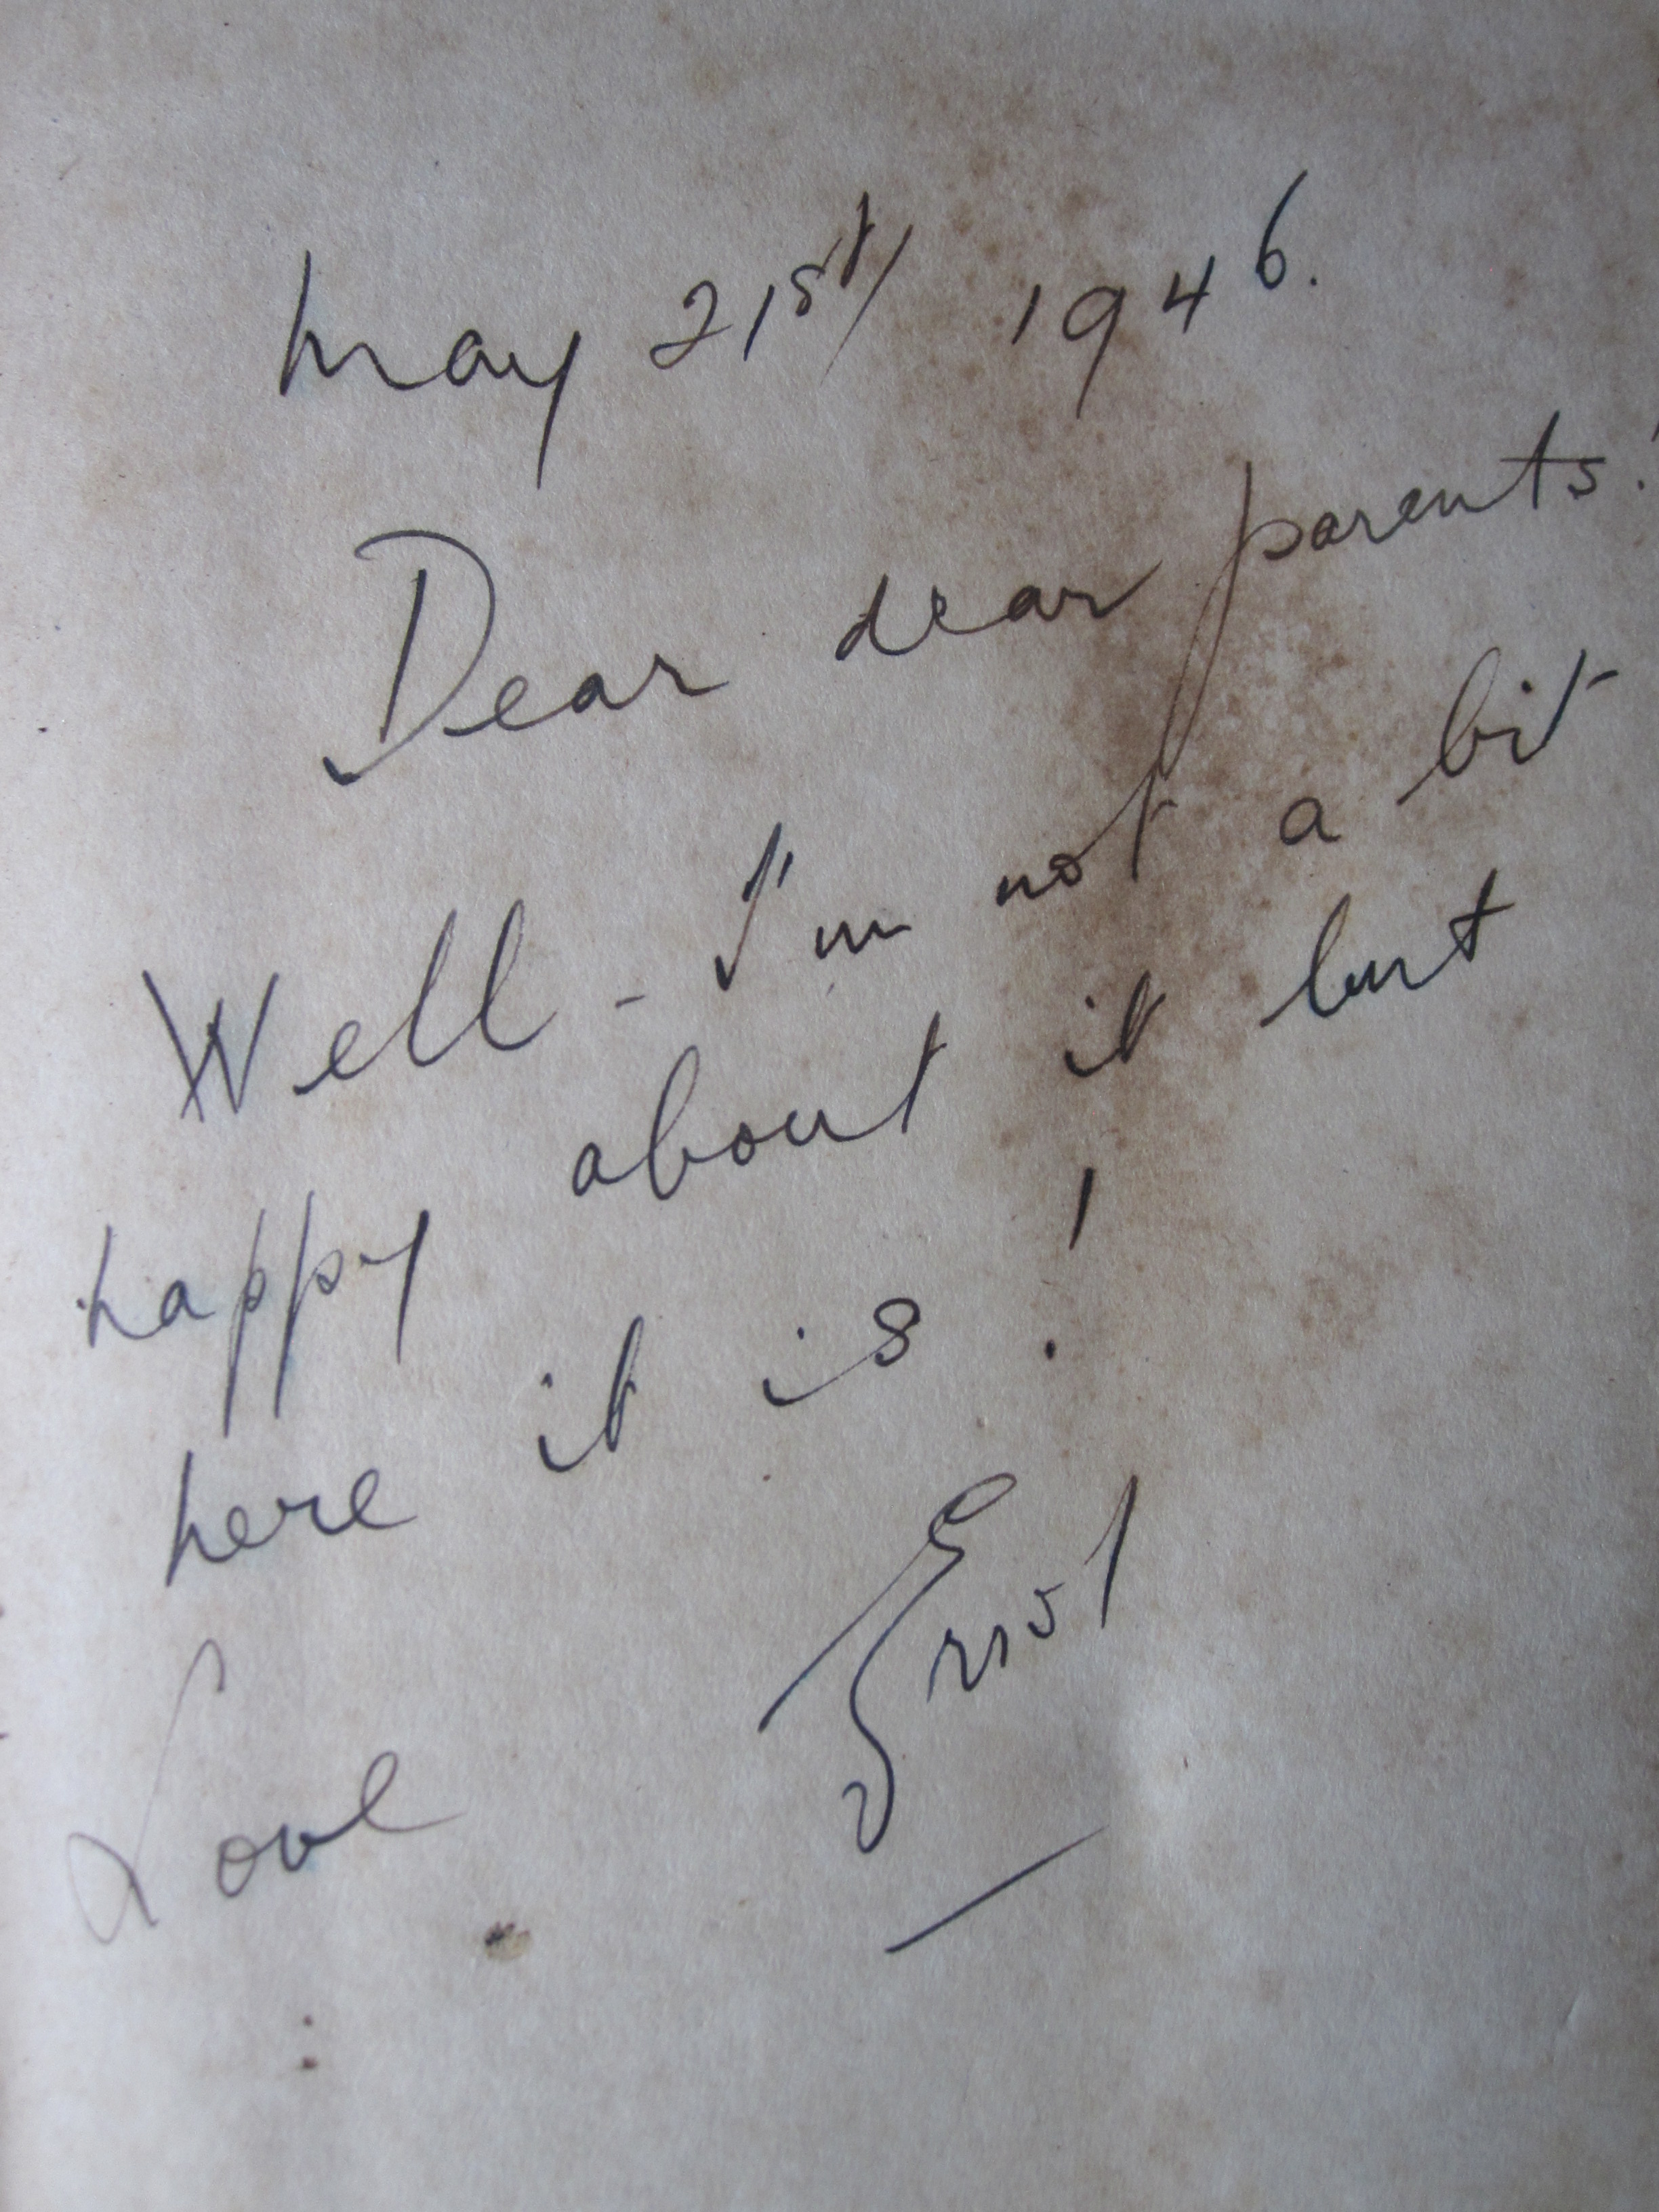 May 21st/ 1946.
Dear dear parents!
Well - I'm not a bit
happy about it but
here it is!
Love